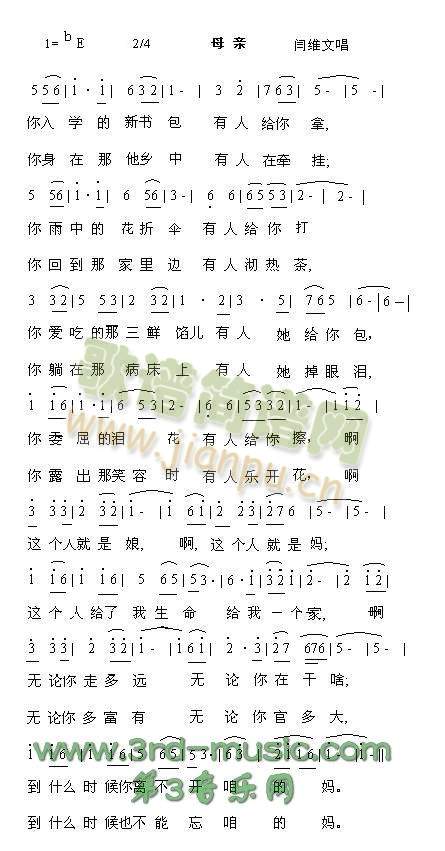 1= bE 2/4 母亲 闫维文唱
5 5 6 | 1 · 1 | 6 3 2 | 1 - | 3 2 | 7 6 3 | 5 - | 5 - |
你入学的新书包有人给你拿,
你身在那他乡中有人在牵挂;
5 56 | 1 · 1 | 6 56 | 3 - | 6 6 | 65 53 | 2 - | 2 - |
你雨中的花折伞有人给你打
你回到那家里边有人沏热茶,
3 32 | 5 53 | 2 32 | 1 · 2 | 3 · 5 | 7 65 | 6 - | 6 - |
你爱吃的那三鲜馅儿有人她给你包,
你躺在那病床上有人她掉眼泪,
1 16 | 1 · 1 | 6 53 | 2 - | 6 · 6 | 5332 | 1 - | 1 12 |
你委屈的泪花有人给你擦,啊
你露出那笑容时有人乐开花,啊
3 33 | 2 32 | 1 - | 1 61 | 2 · 3 | 276 | 5 - | 5 - |
这个人就是娘,啊,这个人就是妈;
1 16 | 1 16 | 5 65 | 53· | 6 · 1 | 321 | 2 - | 2 12 |
这个人给了我生命给我一个家,啊
3 33 | 2 32 | 1 - | 1 61 | 2 · 3 | 27 676 | 5 - | 5 - |
无论你走多远无论你在干啥;
无论你多富有无论你官多大,
www.3rd-music.com
1 16 | 1 16 | 5 65 | 53· | 6 3 | 2116 | 1 - | 1 - |
第3音乐网
到什么时候你离不开咱的妈。
到什么时候也不能忘咱的妈。
歌谱简谱网
www.jianpu.cn